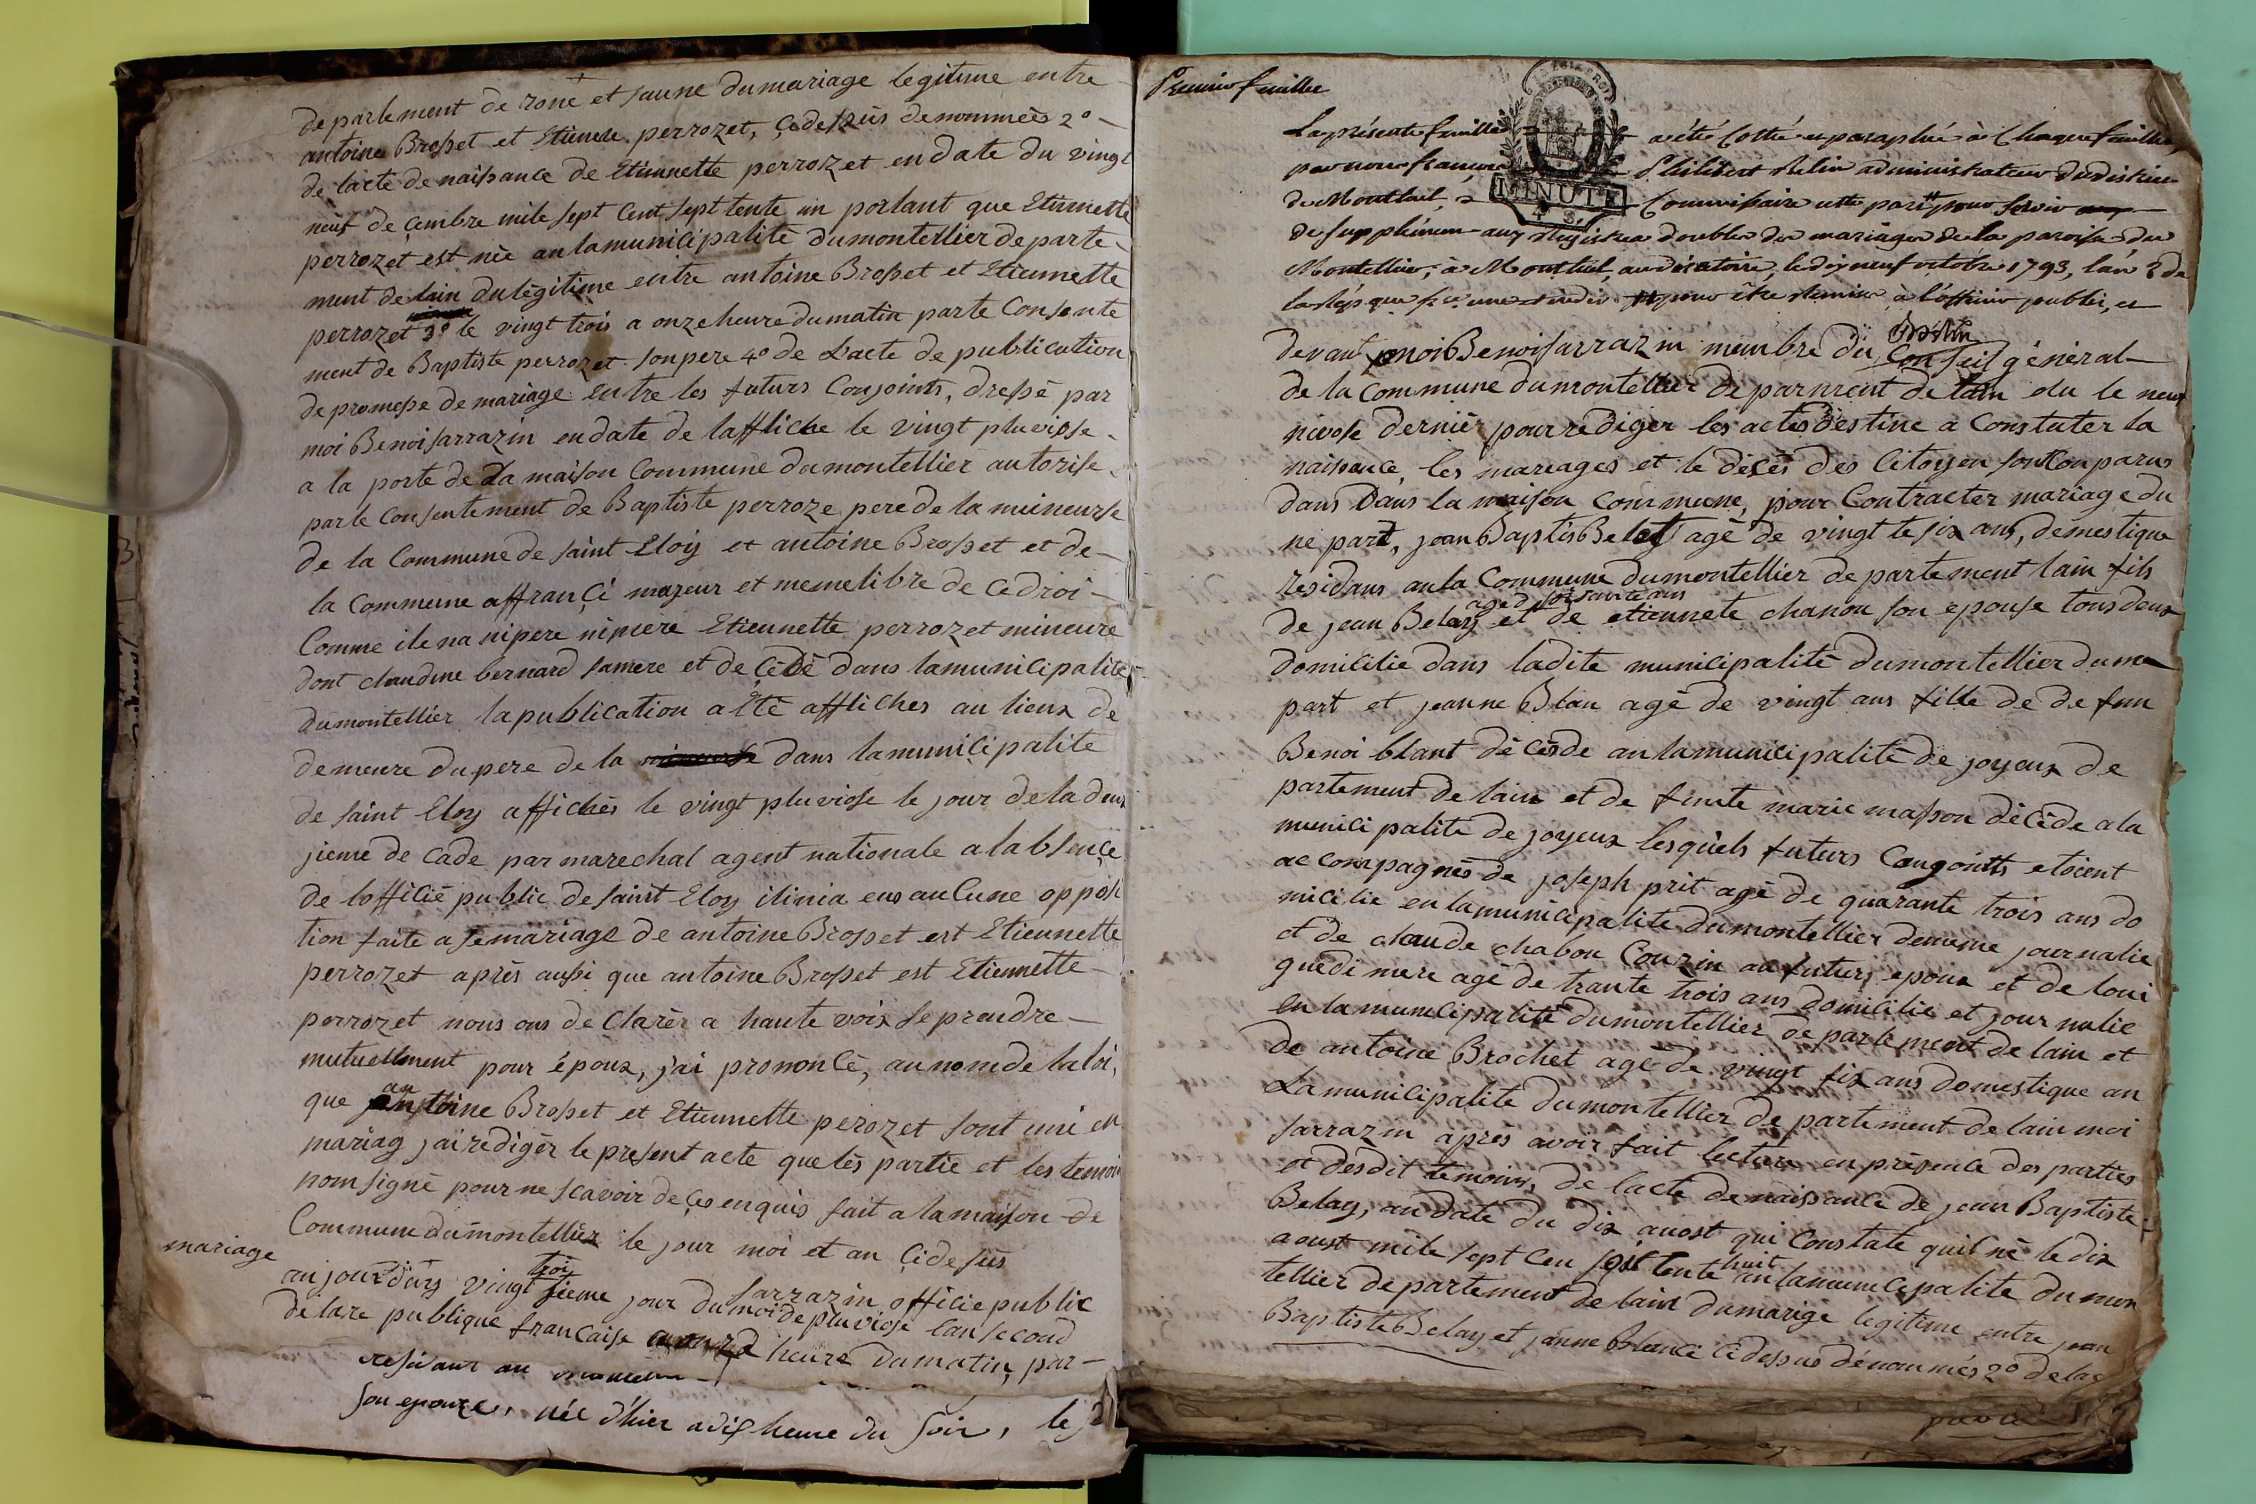 departement de rone et saune du mariage legitime entre
antoine Brosset et Etienette perrozet, çi desus denommèes 2°
de lacte de naissance de Etiennette perrozet en date du vingt
neuf deçembre mile sept cent septtente un portant que Etiennette
perrozet est nèe an la municipalitè du montellier departe-
ment de lain du lègitime entre antoine Brosset et Etiennette
perrozet 3° le vingt trois a onze heure du matin parte Consente
ment de Baptiste perrozet son pere 4° de L'acte de publication
de promesse de mariage entre les futurs Conjoints, dressè par
moi Benoi sarrazin en date de laffliche le vingt pluviose
a la porte de La maison Commune du montellier autorise
par le Consentement de Baptiste perroze pere de la mineurse
de la Commune de saint Eloy et antoine Brosset et de
la Commune affrançi majeur et meme libre de ce droi
Comme ile na ni pere ni mere Etiennette perrozet mineure
dont claudine bernard sa mere et deçèdè dans la municipalitè
du montellier la publication a Etè affliches au lieux de
demeure du pere de la dans la municipalitè
de saint Eloy affichès le vingt pluviose le jour de la deux
jieme decade par marechal agent nationale a labsençe
de lofficiè public de saint Eloy il ni a eus auCune opposi
tion faite a se mariage de antoine Brosset est Etiennette
perrozet après aussi que antoine Brosset est Etiennette
perrozet nous ons deClarèr a haute voix se prendre
mutuellment pour époux, j'ai prononcè, au nom de la loi,
que antoine Brosset et Etiennette perozet sont uni en
mariag jai redigèr le present acte que lès partie et les temoin
nom signè pour ne scavoir de çes enquis fait a la maison de
Commune du montellier le jour moi et an çi desus
sarrazin officie public
mariage
aujourduy vingt trois sieme jour du moi de pluviose lan second
de lare publique française a onze heure du matin, par-
residant au
son epouze, née d'hier a dix heure du soir, le 2
Premier feuillet
La présente feuille a été Cotté et paraphé à Chaque feuillet,
par nous françois Philibert Belin administrateur du district
de Montluel, Commissaire cette partie pour servir
MINUTE
de supplément aux Registres doubles des mariages de la paroisse du
Montellier, à Montluel, au directoire, le dix neuf octobre 1793, l'an 2 de
la Rép. que fse une et indiv. pour être remise à l'officier public, et
Belin
devant moi Benoi sarrazin membre du Conseil gèneral
de la Commune du montellier departement de lain elu le neuf
nivose dernièr pour rèdiger les actes destine a Constater la
naissance, les mariages et le dècès des Citoyen sont Conparus
dans Dans la maison Commune, pour Contracter mariage du
ne part, jean Baptis Belay agè de vingte six ans, demestique
residans an la Commune du montellier departement lain fils
de jean Belay aged soisante ans et de etiennete chanon son epouse tous deux
domicilie dans ladite municipalitè du montellier dume
part et jeanne Blan agè de vingt ans fille de de feun
Benoi blant dècède an la municipalitè de joyeux de
partement de lain et de feinte marie masson dècède a la
municipalitè de joyeux lesquels futurs Congoints etoient
accompagnés de joseph prit agè de quarante trois ans do
micilie en la municipalite du montellier demême journalie
et de claude chabon Couzin au futurs epoux et de loui
guedi mere agè de trante trois ans domicilie et journalie
en la municipalitè du montellier departement de lain et
de antoine Brochet agè de vingt six ans domestique an
La municipalite du montellier departement de lain moi
sarrazin après avoir fait lecture en présence des parties
et desdit temoins, de lacte de naissance de jean Baptiste
Belay, an date du dix auost qui Constate quil nè le dix
aoust mile sept Cen septtente huit an la municipalite du mon
tellier departement de lain du marige legitime entre jean
Baptiste Belay et janne Blanc ci dessus dénoumés 2° de lac